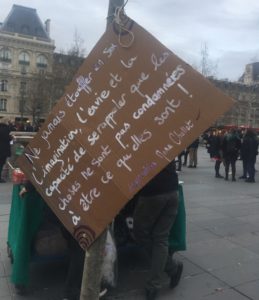 Ne jamais étouffer en soi
l'imagination, l'envie et la
capacité de se rappeler que les
choses ne sont pas condamnées
à être ce qu'elles sont !
Mona Chollet